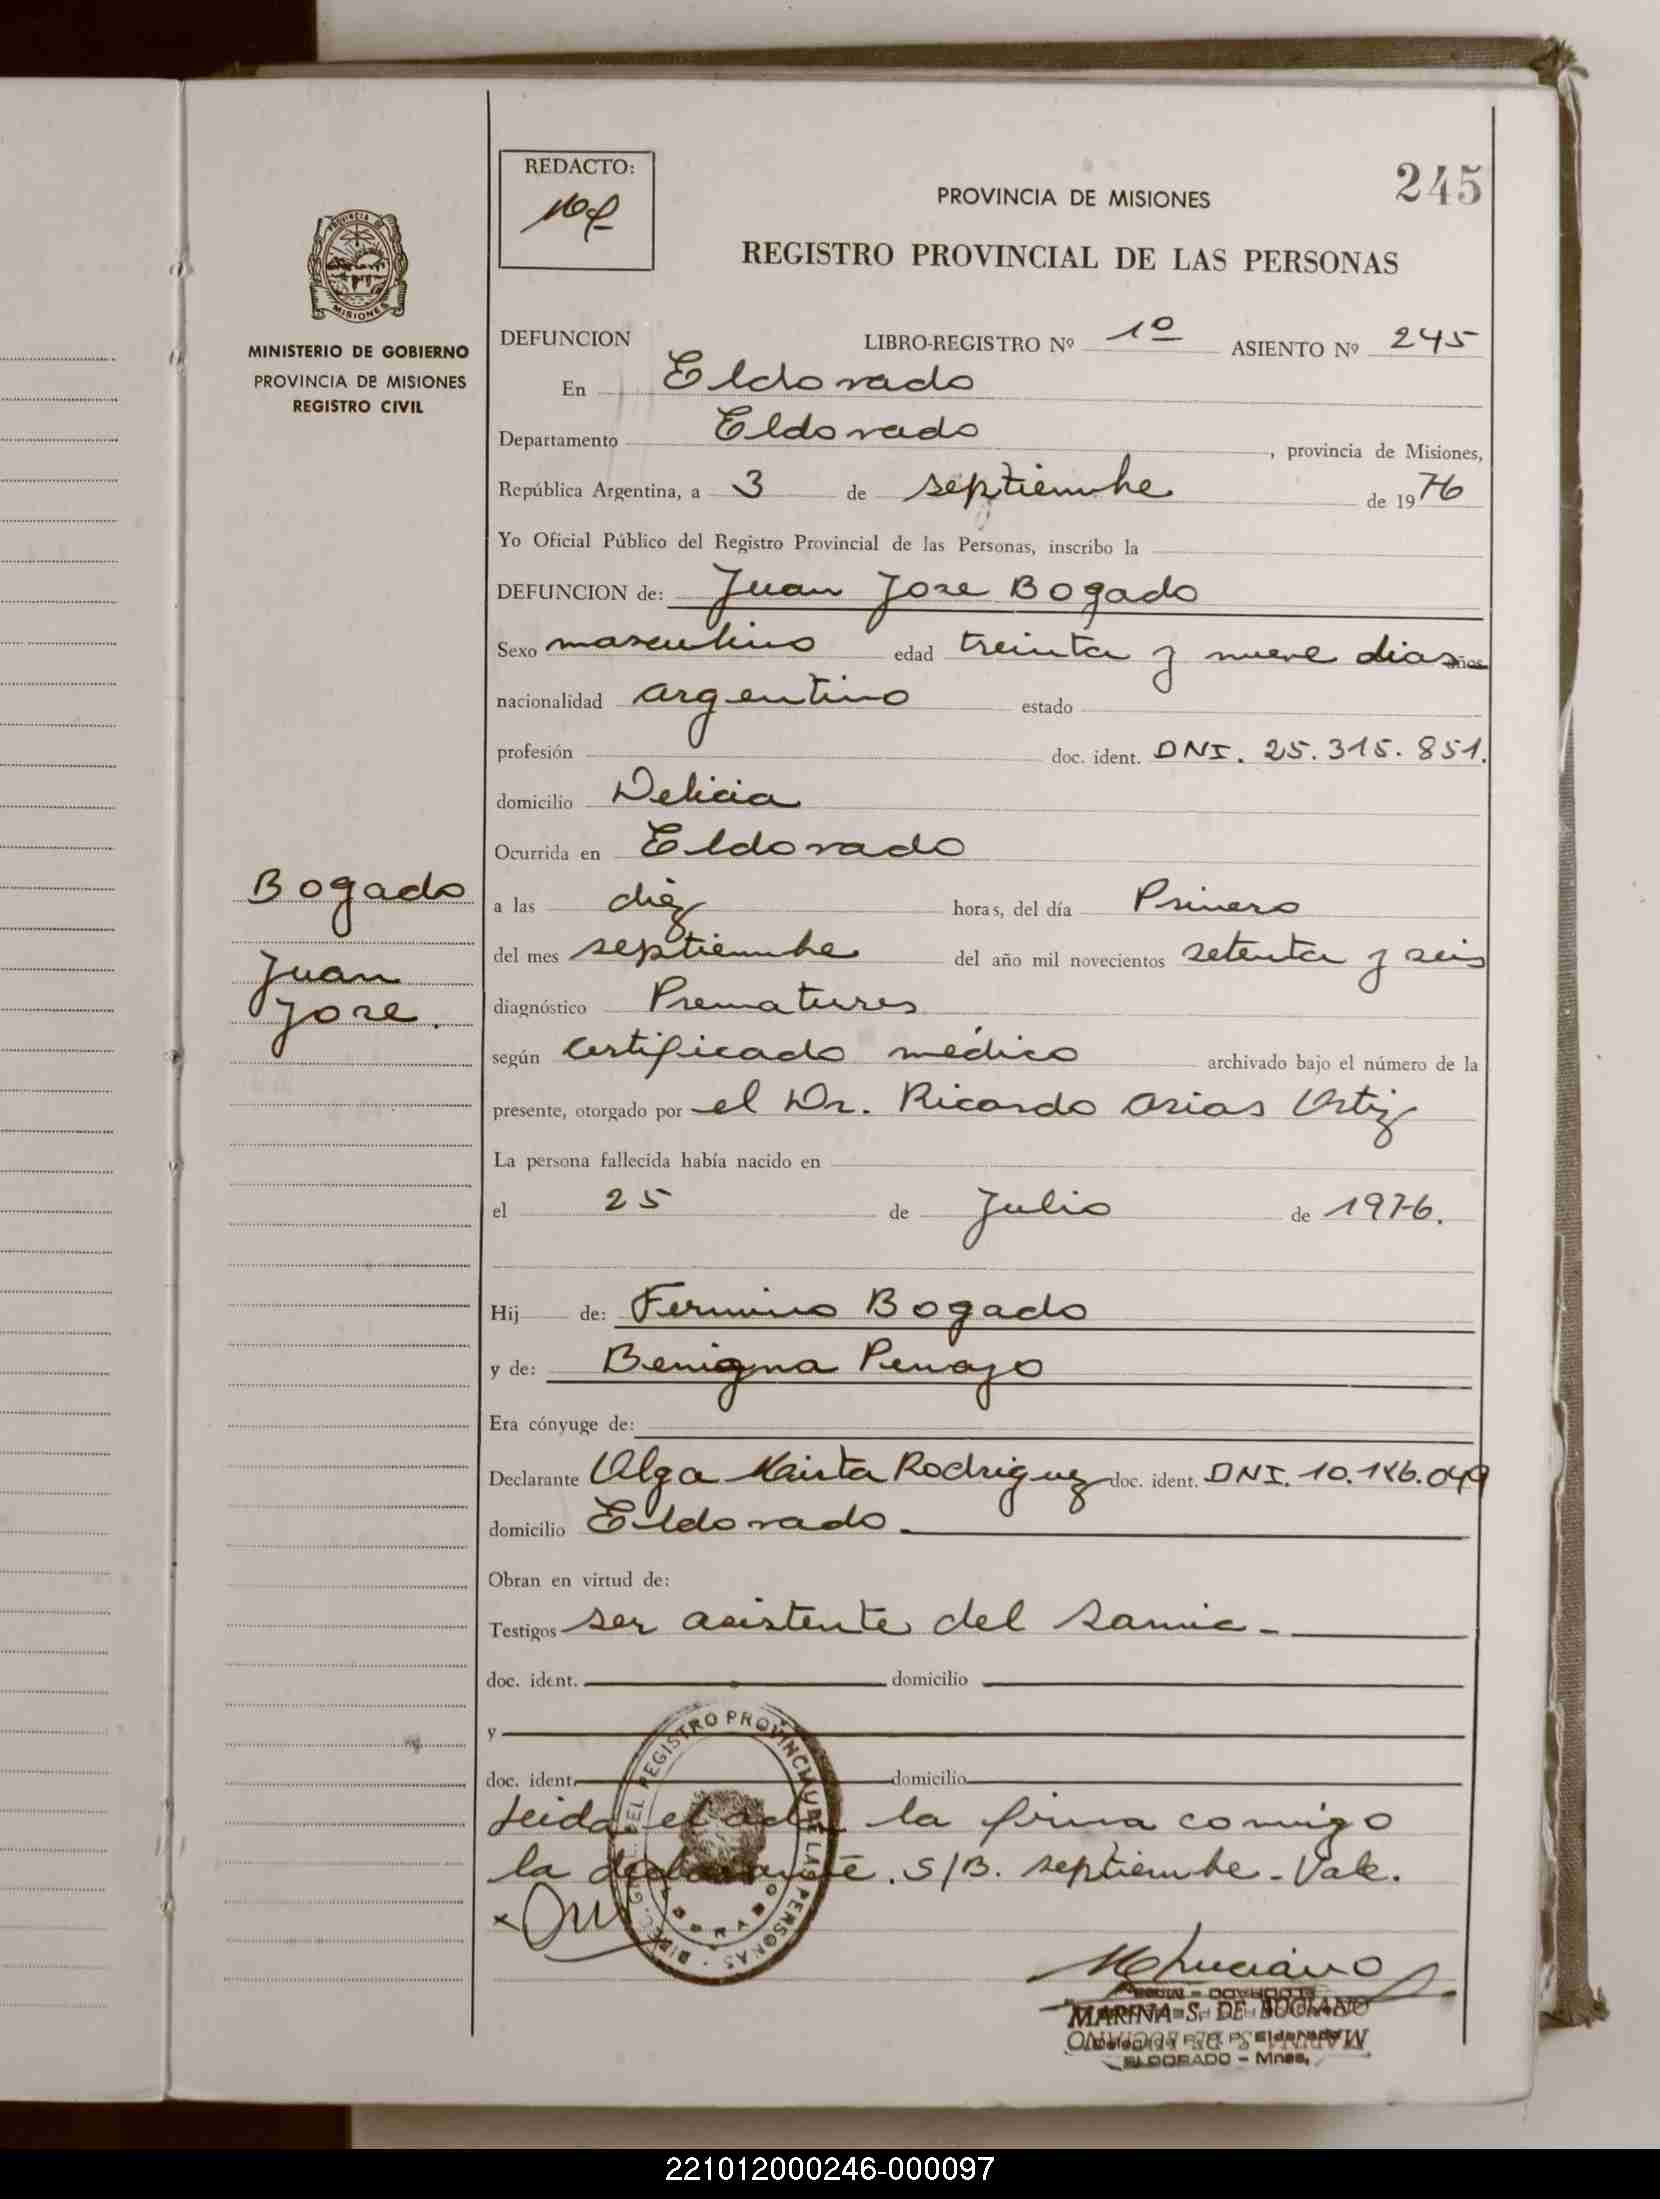 REDACTO:
245
PROVINCIA DE MISIONES
REGISTRO PROVINCIAL DE LAS PERSONAS
PROVINCIA DE
MISIONES
MINISTERIO DE GOBIERNO
PROVINCIA DE MISIONES
REGISTRO CIVIL
DEFUNCION LIBRO-REGISTRO Nº 1º ASIENTO Nº 245
En Eldorado
Departamento Eldorado, provincia de Misiones,
República Argentina, a 3 de septiembre de 1976
Yo Oficial Público del Registro Provincial de las Personas, inscribo la
DEFUNCION de: Juan Jose Bogado
Sexo masculino edad treinta y nueve dias años
nacionalidad argentino estado
profesión doc. ident. DNI. 25.315.851.
domicilio Delicia
Ocurrida en Eldorado
Bogado
Juan
Jose.
a las diez horas, del día Primero
del mes septiembre del año mil novecientos setenta y seis
diagnóstico Prematurez
según certificado médico archivado bajo el número de la
presente, otorgado por el Dr. Ricardo Arias Ortiz
La persona fallecida había nacido en
el 25 de Julio de 1976.
Hij de: Fermino Bogado
y de: Benigna Penayo
Era cónyuge de:
Declarante Olga Rodriguez doc. ident. DNI.
domicilio Eldorado
Obran en virtud de:
Testigos ser asistente del Samic-
doc. ident. domicilio
y
doc. ident. domicilio
Leida el acta la firma comigo
la declarante. S/B. septiembre-Vale.
DIREC. GRAL. DEL REGISTRO PROVINCIAL DE LAS PERSONAS
MARINA S. DE BUCIANO
ELDORADO - Mnes.
221012000246-000097